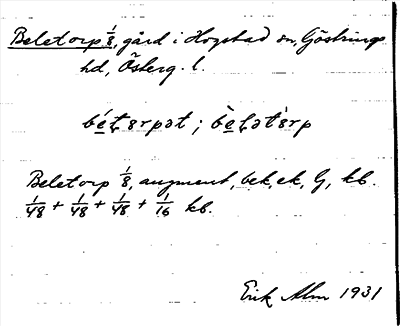 Beletorp 1/8, gård i Hogstad sn, Göstrings
hd, Österg. l.
Beletorp 1/8, augment, bek. ek, G, kb.
1/48 + 1/48 + 1/48 + 1/16 kb.
Erik Alm 1931